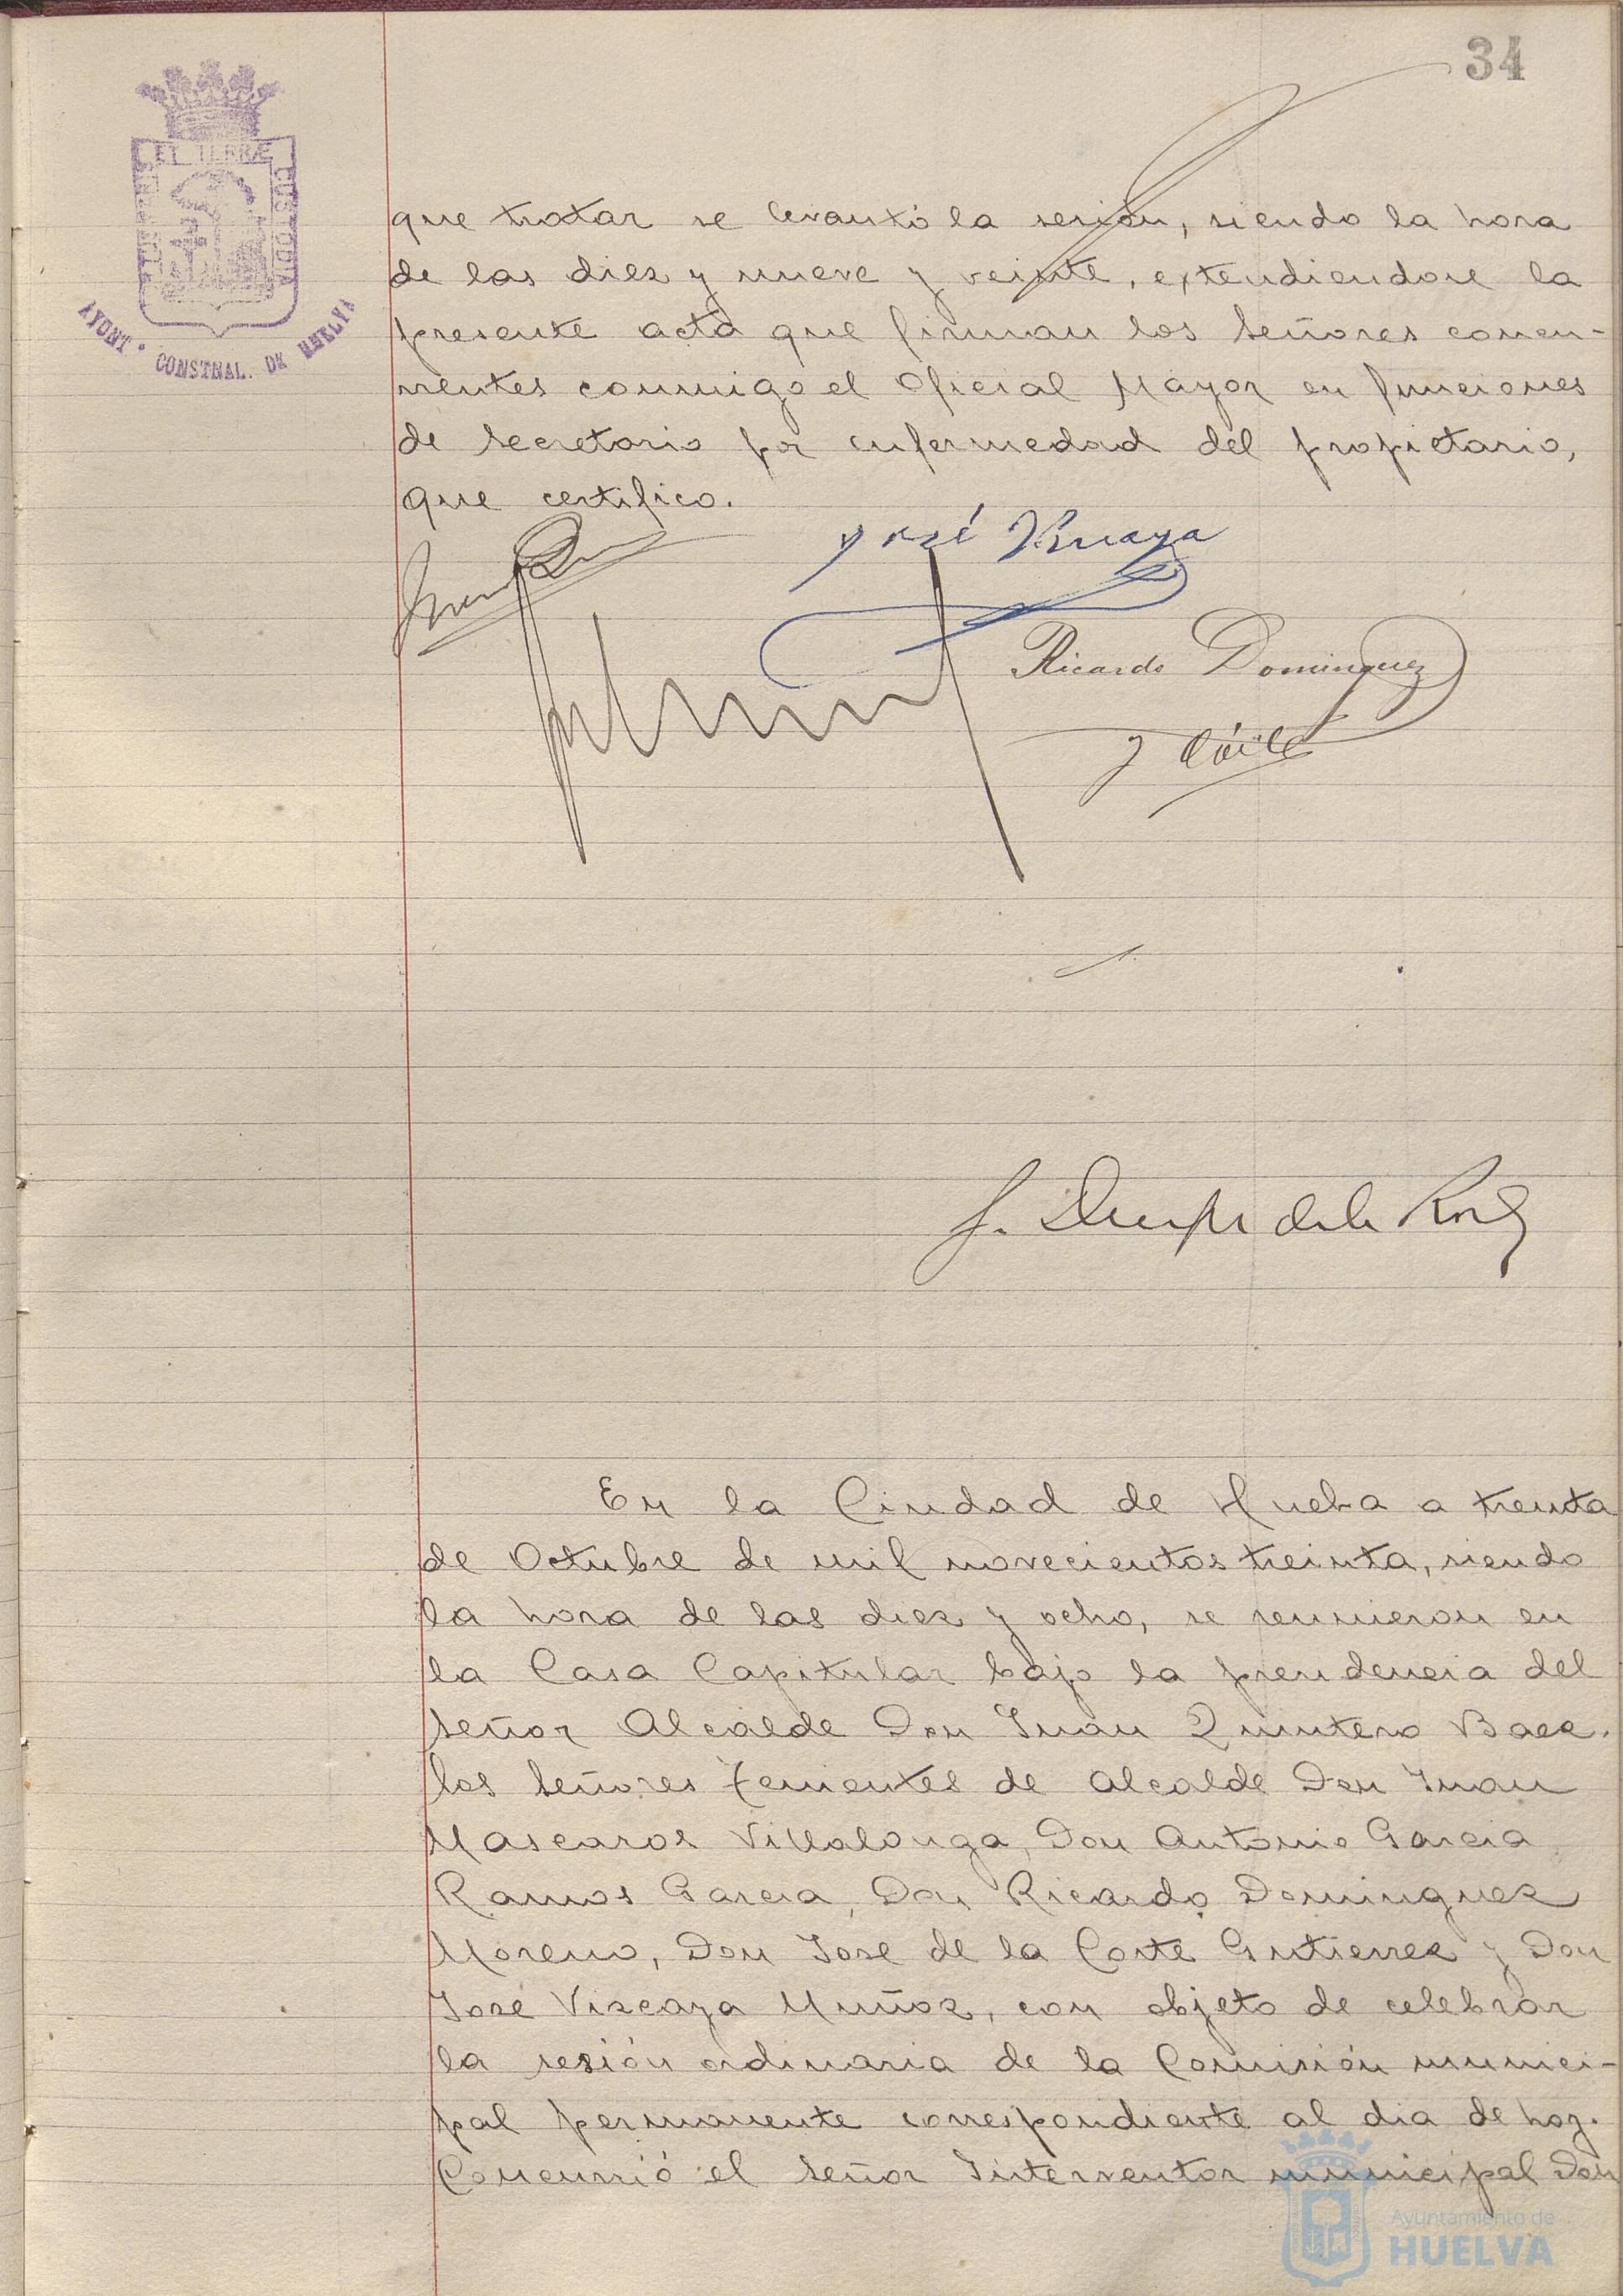 34
ET TERRÆ
CUSTODIA
AYONT° CONSTNAL. DE HUELVA
que tratar se levantó la sesión, siendo la hora
de las diez y nueve y veinte, extendiendose la
presente acta que firman los Señores concu-
rrentes conmigo el Oficial Mayor en funciones
de Secretario por enfermedad del propietario,
que certifico.
José Vizcaya
Ricardo Dominguez
En la Ciudad de Huelva a treinta
de Octubre de mil novecientos treinta, siendo
la hora de las diez y ocho, se reunieron en
la Casa Capitular bajo la presidencia del
Señor Alcalde Don Juan Quintero Baez.
los Señores Tenientes de Alcalde Don Juan
Mascaros Villalonga, Don Antonio Garcia
Ramos Garcia, Don Ricardo Dominguez
Moreno, Don Jose de la Corte Gutierrez y Don
José Vizcaya Muñoz, con objeto de celebrar
la sesión ordinaria de la Comisión munici-
pal permanente correspondiente al dia de hoy.
Concurrió el Señor Interventor municipal Don
Ayuntamiento de
HUELVA